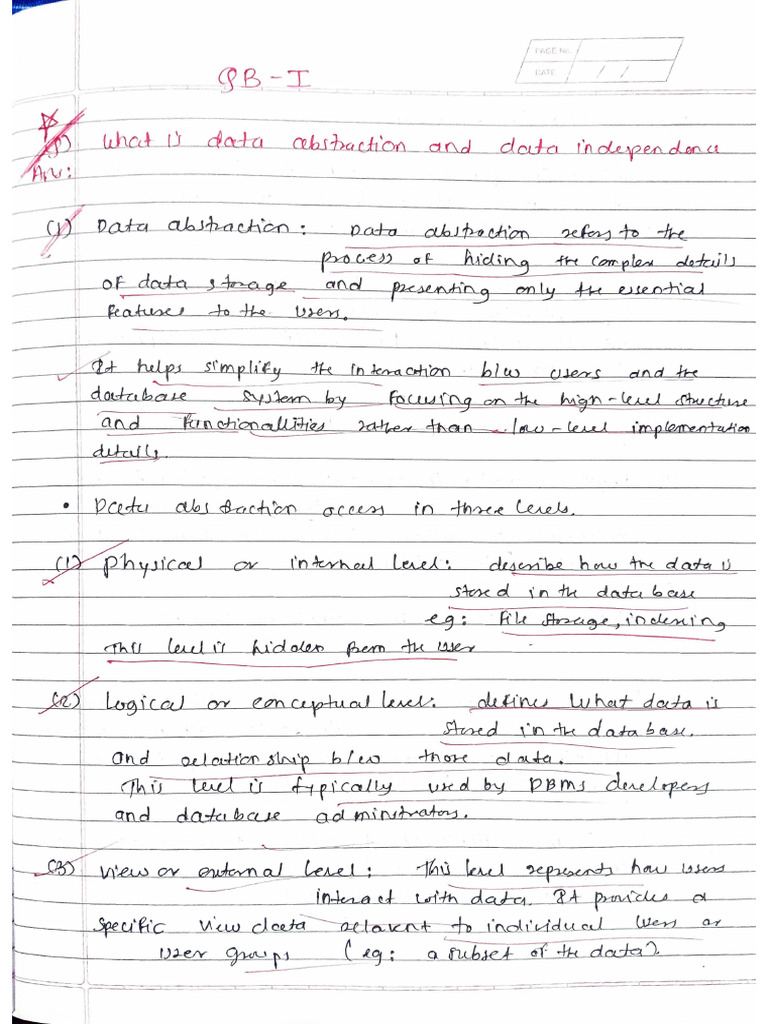 PAGE No.
DATE / /
QB - I
1) What is data abstraction and data independence
Ans:
(1) Data abstraction: Data abstraction refers to the
process of hiding the complex details
of data storage and presenting only the essential
features to the users.
It helps simplify the interaction b/w users and the
database system by focusing on the high-level structure
and functionallities rather than low-level implementation
details.
• Data abstraction occers in three levels.
(1) Physical or internal level: describe how the data is
stored in the database
eg: file storage, indexing
This level is hidden from the user
(2) Logical or conceptual level: defines What data is
stored in the database.
and relationship b/w those data.
This level is typically used by DBMS developers
and database adminstrators.
(3) View or external level: This level represents how users
interact with data. It provides a
specific view data relavent to individual users or
user groups (eg: a subset of the data).